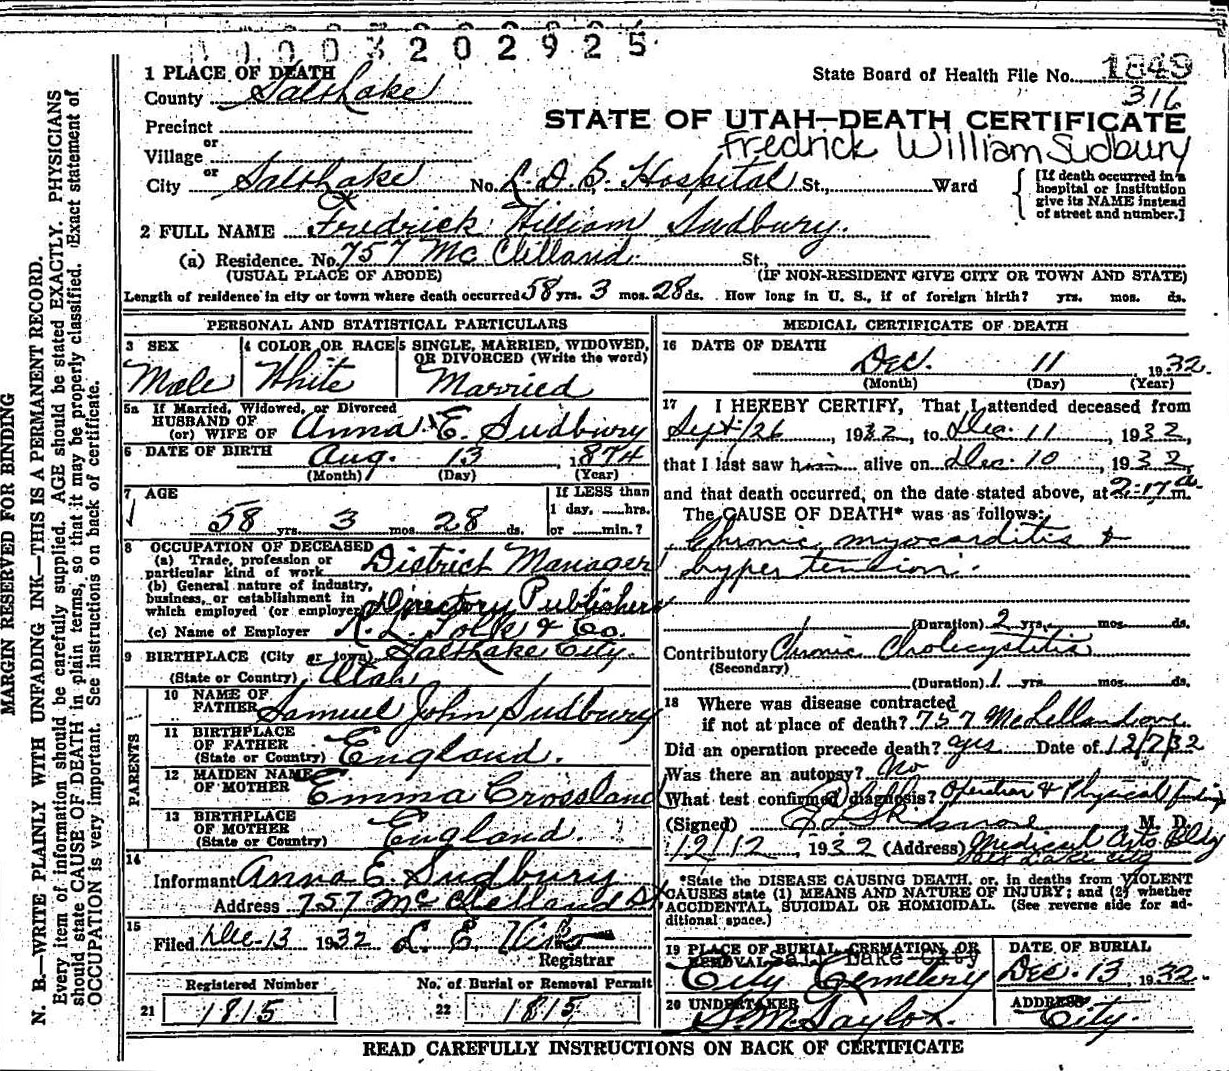 00 03202925
1849
1 PLACE OF DEATH
State Board of Health File No.
316
County Salt Lake
STATE OF UTAH—DEATH CERTIFICATE
Precinct
or
Fredrick William Sudbury
Village
or
City Salt Lake No. L. D. S. Hospital St., Ward
[If death occurred in a hospital or institution give its NAME instead of street and number.]
2 FULL NAME Fredrick William Sudbury.
(a) Residence. No. 757 Mc Clelland St.,
(USUAL PLACE OF ABODE) (IF NON-RESIDENT GIVE CITY OR TOWN AND STATE)
Length of residence in city or town where death occurred 58 yrs. 3 mos. 28 ds. How long in U. S., if of foreign birth? yrs. mos. ds.
PERSONAL AND STATISTICAL PARTICULARS
3 SEX
Male
4 COLOR OR RACE
White
5 SINGLE, MARRIED, WIDOWED, OR DIVORCED (Write the word)
Married
5a If Married, Widowed, or Divorced
HUSBAND OF
(or) WIFE OF Anna E. Sudbury
6 DATE OF BIRTH Aug. 13, 1874
(Month) (Day) (Year)
7 AGE
58 yrs. 3 mos. 28 ds.
If LESS than
1 day, hrs.
or min.?
8 OCCUPATION OF DECEASED
(a) Trade, profession or
particular kind of work District Manager
(b) General nature of industry,
business, or establishment in
which employed (or employer) Directory Publishers
(c) Name of Employer R. L. Polk & Co.
9 BIRTHPLACE (City or town) Salt Lake City.
(State or Country) Utah
PARENTS
10 NAME OF
FATHER Samuel John Sudbury
11 BIRTHPLACE
OF FATHER
(State or Country) England.
12 MAIDEN NAME
OF MOTHER Emma Crossland
13 BIRTHPLACE
OF MOTHER
(State or Country) England.
14
Informant Anna E. Sudbury
Address 757 Mc Clelland St
15
Filed Dec-13 1932 L. E.
Registrar
Registered Number
21 1815
No. of Burial or Removal Permit
22 1815
MEDICAL CERTIFICATE OF DEATH
16 DATE OF DEATH
Dec. 11 1932.
(Month) (Day) (Year)
17 I HEREBY CERTIFY, That I attended deceased from
Sept. 26, 1932, to Dec. 11, 1932,
that I last saw him alive on Dec. 10, 1932,
and that death occurred, on the date stated above, at 2:17 a m.
The CAUSE OF DEATH* was as follows:
Chronic myocarditis &
hyper tension.
(Duration) 2 yrs. mos. ds.
Contributory Chronic Cholecystitis
(Secondary)
(Duration) 1 yrs mos. ds.
18 Where was disease contracted
if not at place of death? 757 McLelland ave
Did an operation precede death? yes Date of 12/7/32
Was there an autopsy? No
What test confirmed diagnosis? Operation & Physical findings
(Signed) Skidmore M. D.
12/12, 1932 (Address) Medical Arts Bldg
Salt Lake City
*State the DISEASE CAUSING DEATH, or, in deaths from VIOLENT
CAUSES state (1) MEANS AND NATURE OF INJURY; and (2) whether
ACCIDENTAL, SUICIDAL OR HOMICIDAL. (See reverse side for ad-
ditional space.)
19 PLACE OF BURIAL CREMATION, OR
REMOVAL Salt Lake City
City Cemetery
DATE OF BURIAL
Dec. 13, 1932.
20 UNDERTAKER
S. M. Taylor.
ADDRESS
City.
READ CAREFULLY INSTRUCTIONS ON BACK OF CERTIFICATE
MARGIN RESERVED FOR BINDING
N. B.—WRITE PLAINLY WITH UNFADING INK—THIS IS A PERMANENT RECORD.
Every item of information should be carefully supplied. AGE should be stated EXACTLY. PHYSICIANS
should state CAUSE OF DEATH in plain terms, so that it may be properly classified. Exact statement of
OCCUPATION is very important. See instructions on back of certificate.